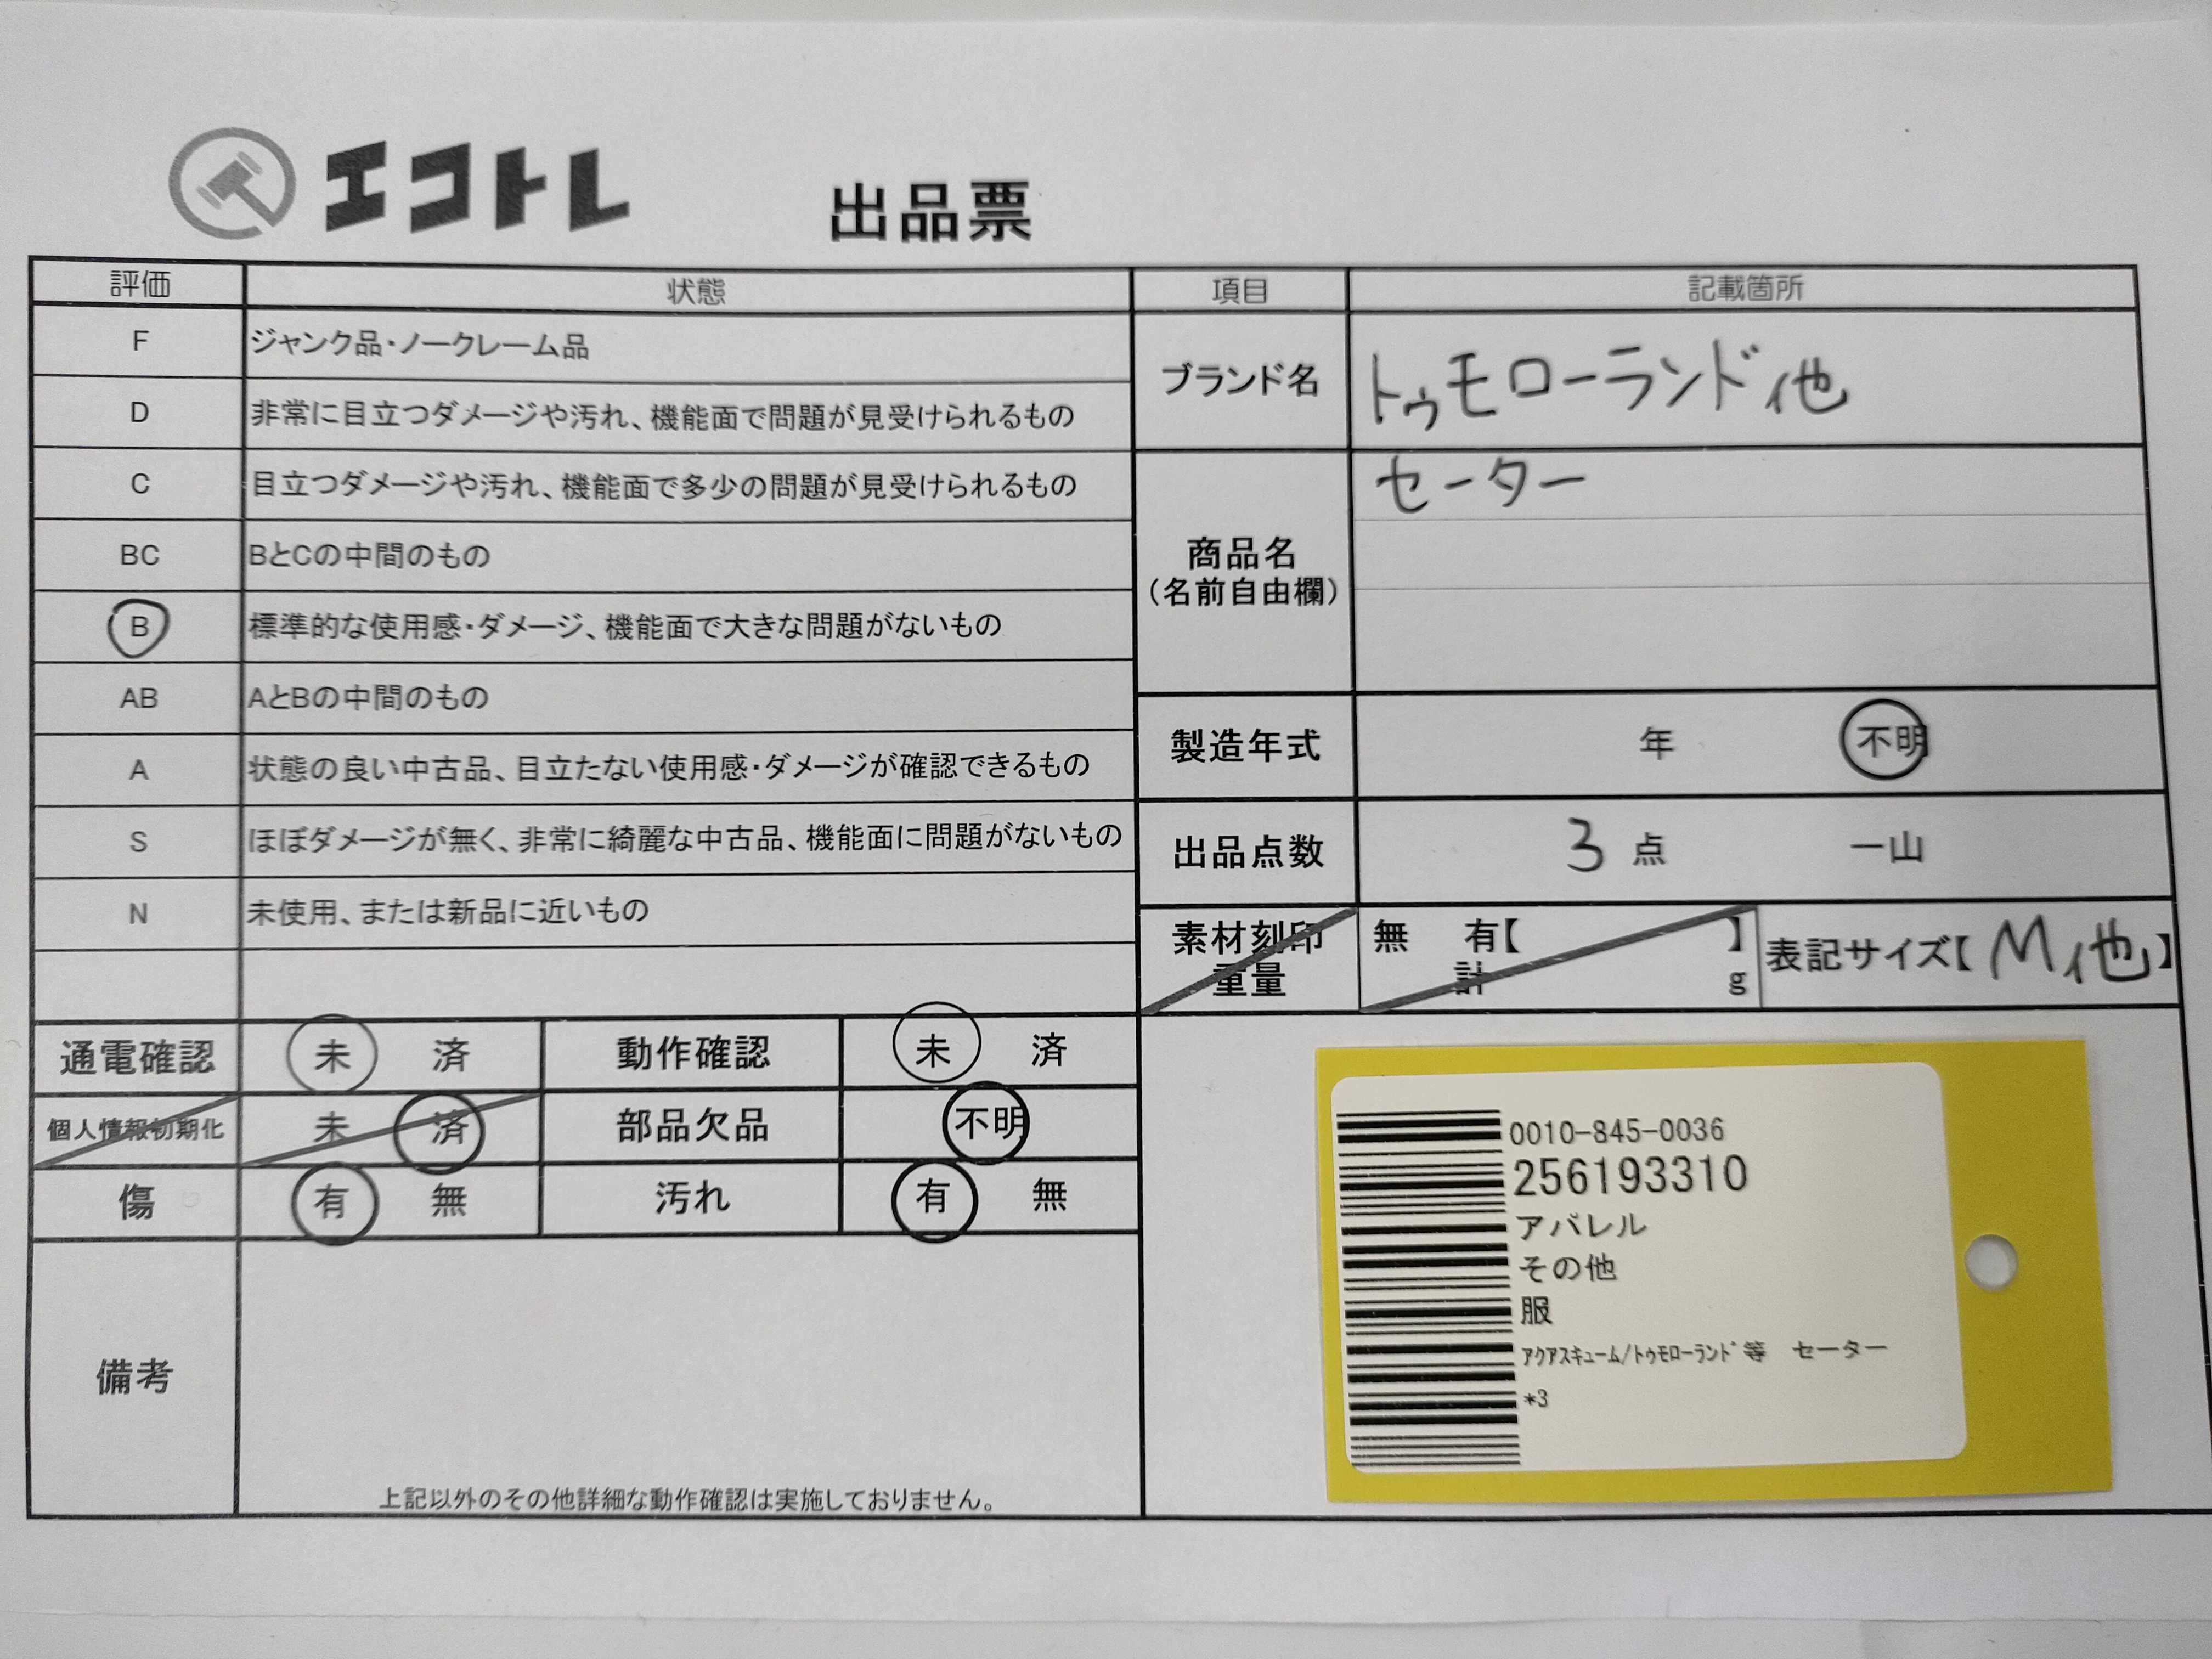 エコトレ
出品票
評価 状態
F ジャンク品・ノークレーム品
D 非常に目立つダメージや汚れ、機能面で問題が見受けられるもの
C 目立つダメージや汚れ、機能面で多少の問題が見受けられるもの
BC BとCの中間のもの
B 標準的な使用感・ダメージ、機能面で大きな問題がないもの
AB AとBの中間のもの
A 状態の良い中古品、目立たない使用感・ダメージが確認できるもの
S ほぼダメージが無く、非常に綺麗な中古品、機能面に問題がないもの
N 未使用、または新品に近いもの
通電確認 未 済 動作確認 未 済
個人情報初期化 未 済 部品欠品 不明
傷 有 無 汚れ 有 無
備考
上記以外のその他詳細な動作確認は実施しておりません。
項目 記載箇所
ブランド名 トゥモローランド他
商品名
(名前自由欄)
セーター
製造年式 年 不明
出品点数 3 点 一山
素材刻印
重量
無 有【 】
計 g
表記サイズ【M他】
0010-845-0036
256193310
アパレル
その他
服
ｱｸｱｽｷｭｰﾑ/ﾄｩﾓﾛｰﾗﾝﾄﾞ等 セーター
*3